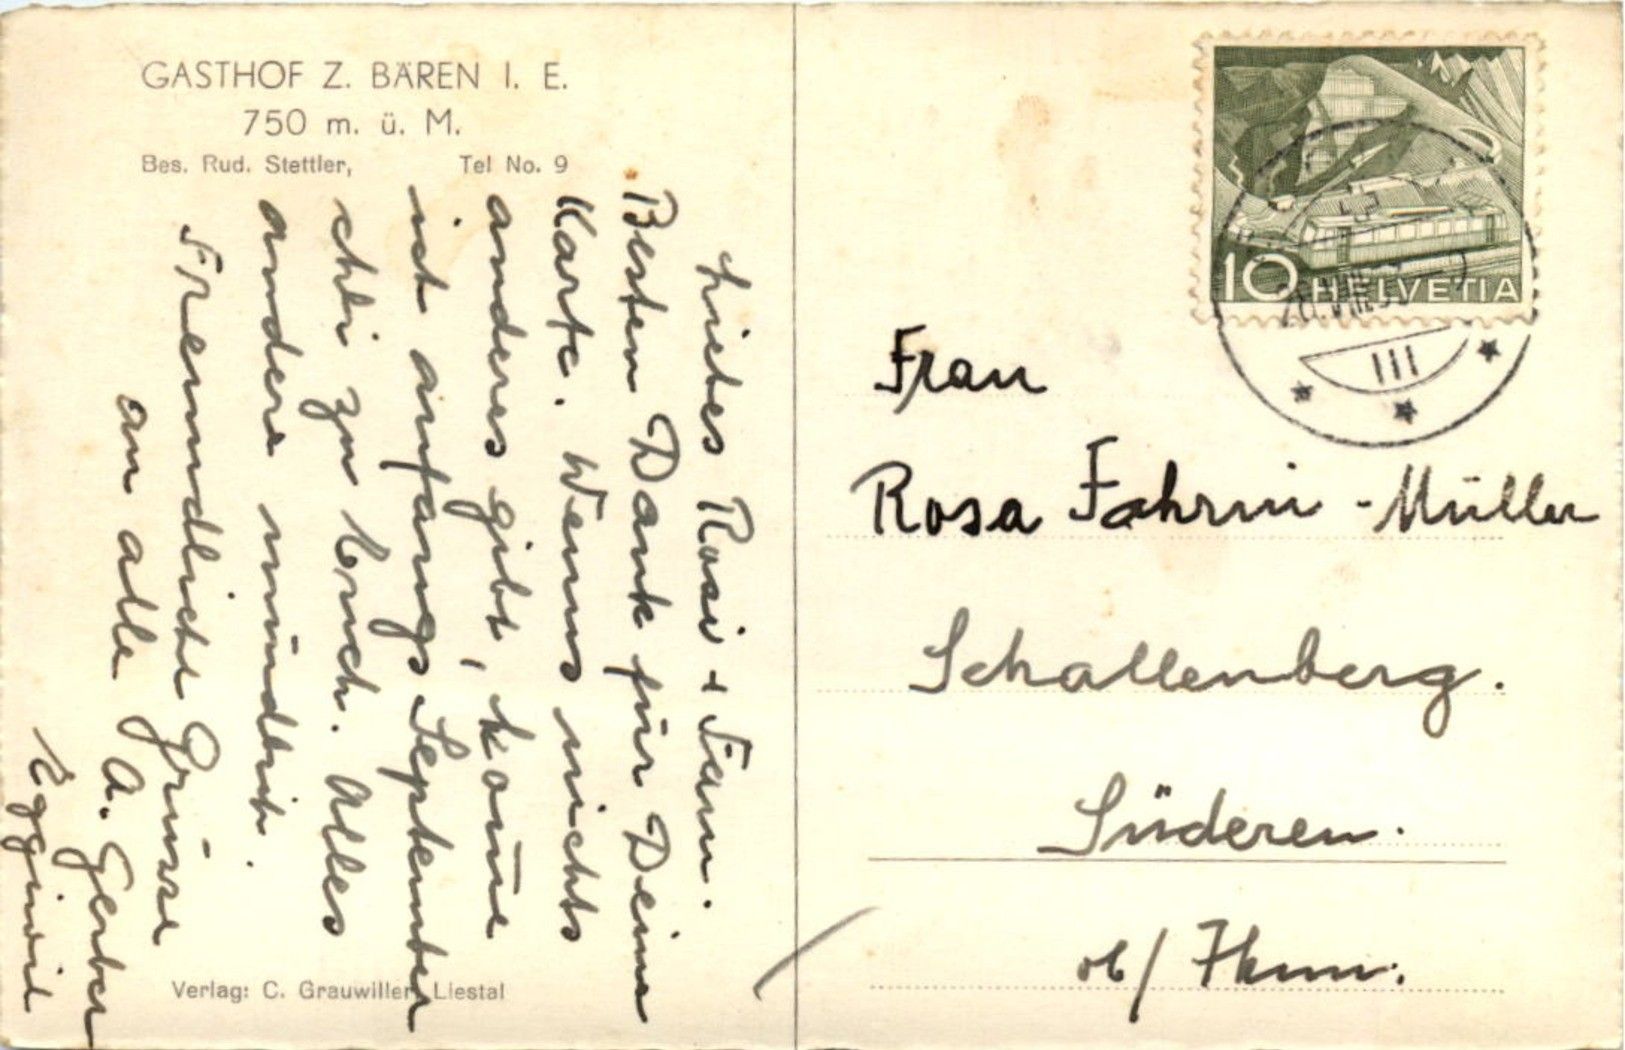 GASTHOF Z. BÄREN I. E.
750 m. ü. M.
Bes. Rud. Stettler, Tel No. 9
Liebes Rosi + Fam.
Besten Dank für Deine
Karte. Wenns nichts
anderes gibt, kom̅e
ich anfangs September
chli zu Euch. Alles
andere mündlich.
Freundliche Grüsse
an alle A. Gerber
Eggiwil
Verlag: C. Grauwiller, Liestal
10 HELVETIA
III
Frau
Rosa Fahrni-Müller
Schallenberg.
Süderen.
ob/ Thun.